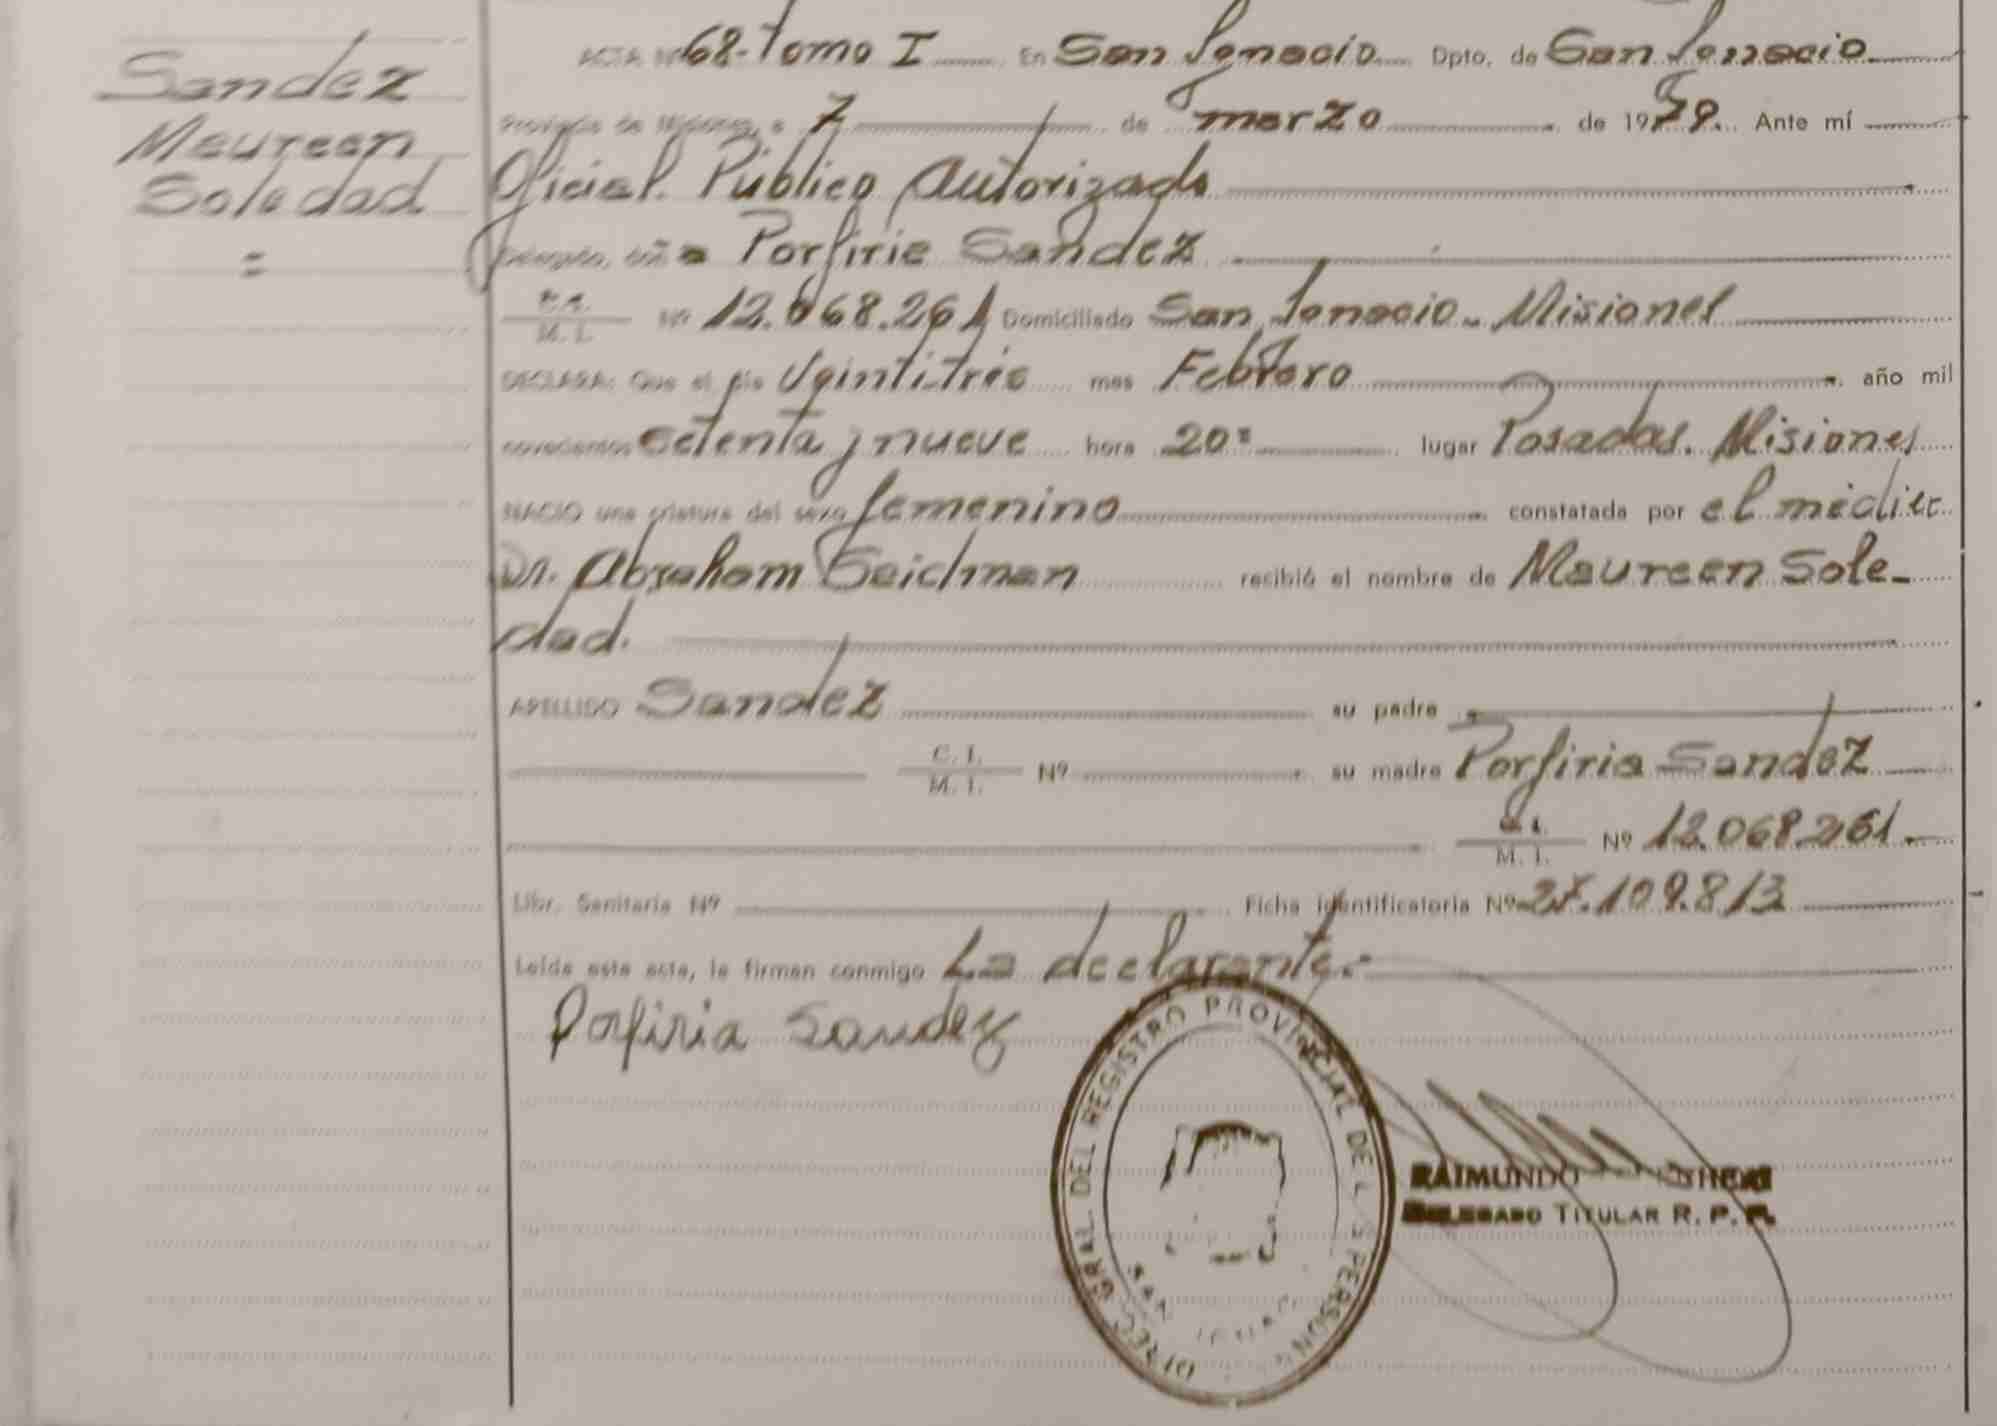 Sandez
Maureen
Soledad
=
ACTA Nº 68- Tomo I En San Ignacio Dpto. de San Ignacio
Provincia de Misiones, a 7 de marzo de 1979. Ante mí
Oficial Público Autorizado
Delegado, doña Porfiria Sandez
M. I. Nº 12.068.261 Domiciliado San Ignacio - Misiones
DECLARA: Que el día Veintitrés mes Febrero año mil
novecientos setenta y nueve hora 20 lugar Posadas. Misiones
NACIO una criatura del sexo femenino constatada por el médico
Dr. Abraham recibió el nombre de Maureen Sole-
dad.
APELLIDO Sandez su padre
C. I. M. I. Nº su madre Porfiria Sandez
M. I. Nº 12.068.261.-
Libr. Sanitaria Nº Ficha identificatoria Nº 27.109.813
Leída esta acta, la firman conmigo La declarante.-
Porfiria Sandez
DIREC. GRAL. DEL REGISTRO PROVINCIAL DE L. S PERSON
SAN
RAIMUNDO
DELEGADO TITULAR R. P. P.